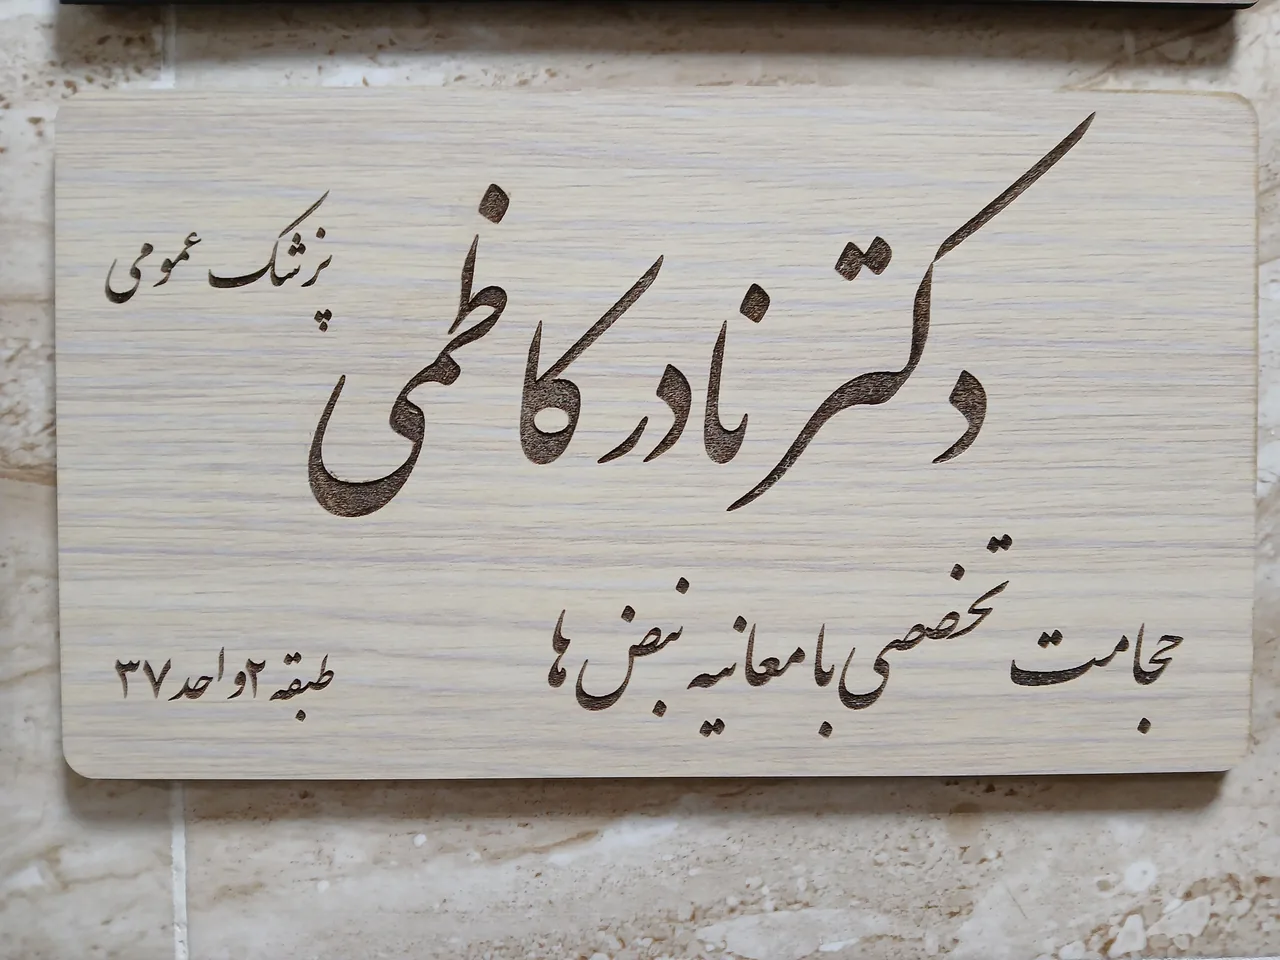 دکتر نادر کاظمی
پزشک عمومی
حجامت تخصصی با معانیه نبض ها
طبقه ۲ واحد ۳۷